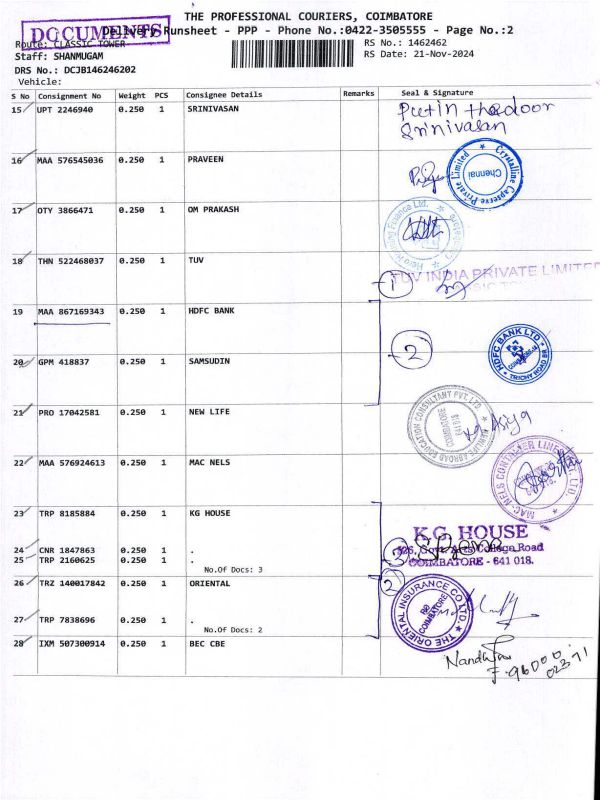 THE PROFESSIONAL COURIERS, COIMBATORE
DOCUMENTS
Delivery Runsheet - PPP - Phone No.:0422-3505555 - Page No.:2
Route: CLASSIC TOWER
RS No.: 1462462
Staff: SHANMUGAM
RS Date: 21-Nov-2024
DRS No.: DCJB146246202
Vehicle:
S No Consignment No Weight PCS Consignee Details Remarks Seal & Signature
15 UPT 2246940 0.250 1 SRINIVASAN
Put in the door
Srinivasan
16 MAA 576545036 0.250 1 PRAVEEN
Crystalline Caperve Private Limited
Chennai
17 OTY 3866471 0.250 1 OM PRAKASH
Hero Housing Finance Ltd.
18 THN 522468037 0.250 1 TUV
1
TUV INDIA PRIVATE LIMITED
19 MAA 867169343 0.250 1 HDFC BANK
2
HDFC BANK LTD.
TRICHY ROAD BR
20 GPM 418837 0.250 1 SAMSUDIN
21 PRO 17042581 0.250 1 NEW LIFE
NEWLIFE ABROAD EDUCATION CONSULTANT PVT. LTD.
COIMBATORE
641 018
22 MAA 576924613 0.250 1 MAC NELS
MAC-NELS CONTAINER LINES PVT. LTD.
23 TRP 8185884 0.250 1 KG HOUSE
K.G. HOUSE
24 CNR 1847863 0.250 1 .
3
Govt. Arts College Road
25 TRP 2160625 0.250 1 .
COIMBATORE - 641 018.
No.Of Docs: 3
26 TRZ 140017842 0.250 1 ORIENTAL
2
THE ORIENTAL INSURANCE CO LTD.
COIMBATORE
27 TRP 7838696 0.250 1 .
No.Of Docs: 2
28 IXM 507300914 0.250 1 BEC CBE